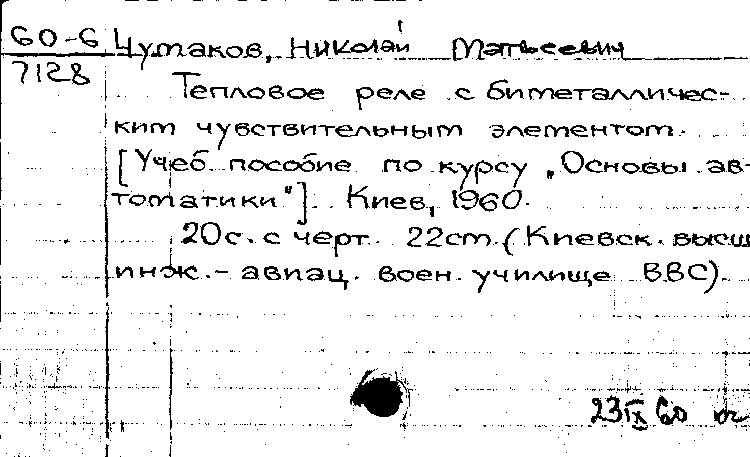 60-6 Чумаков, Николай Матвеевич
7128
Тепловое реле с биметалличес-
ким чувствительным элементом.
[Учеб. пособие по курсу „Основы ав-
томатики"]. Киев, 1960.
20с. с черт. 22cm. (Киевск. высш
инж.-авиац. воен. училище ВВС).
23 IX 60